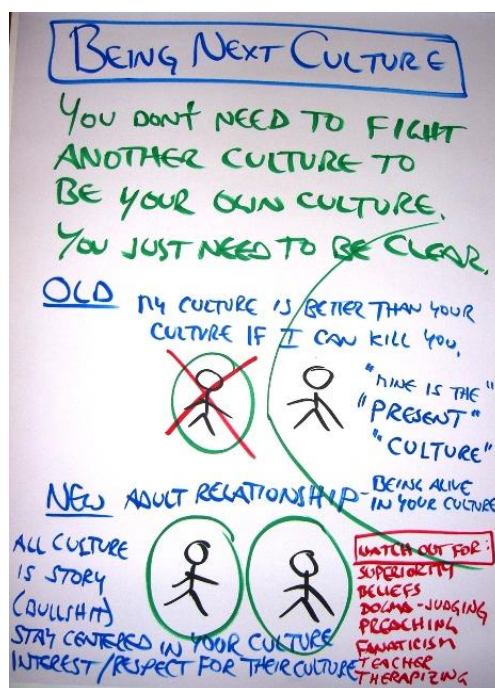 BEING NEXT CULTURE
YOU DON'T NEED TO FIGHT
ANOTHER CULTURE TO
BE YOUR OWN CULTURE.
YOU JUST NEED TO BE CLEAR.
OLD MY CULTURE IS BETTER THAN YOUR
CULTURE IF I CAN KILL YOU.
"MINE IS THE"
"PRESENT"
"CULTURE"
NEW ADULT RELATIONSHIP - BEING ALIVE
IN YOUR CULTURE
ALL CULTURE
IS STORY
(BULLSHIT)
STAY CENTERED IN YOUR CULTURE
INTEREST/RESPECT FOR THEIR CULTURE
WATCH OUT FOR:
SUPERIORITY
BELIEFS
DOGMA-JUDGING
PREACHING
FANATICISM
TEACHER
THERAPIZING